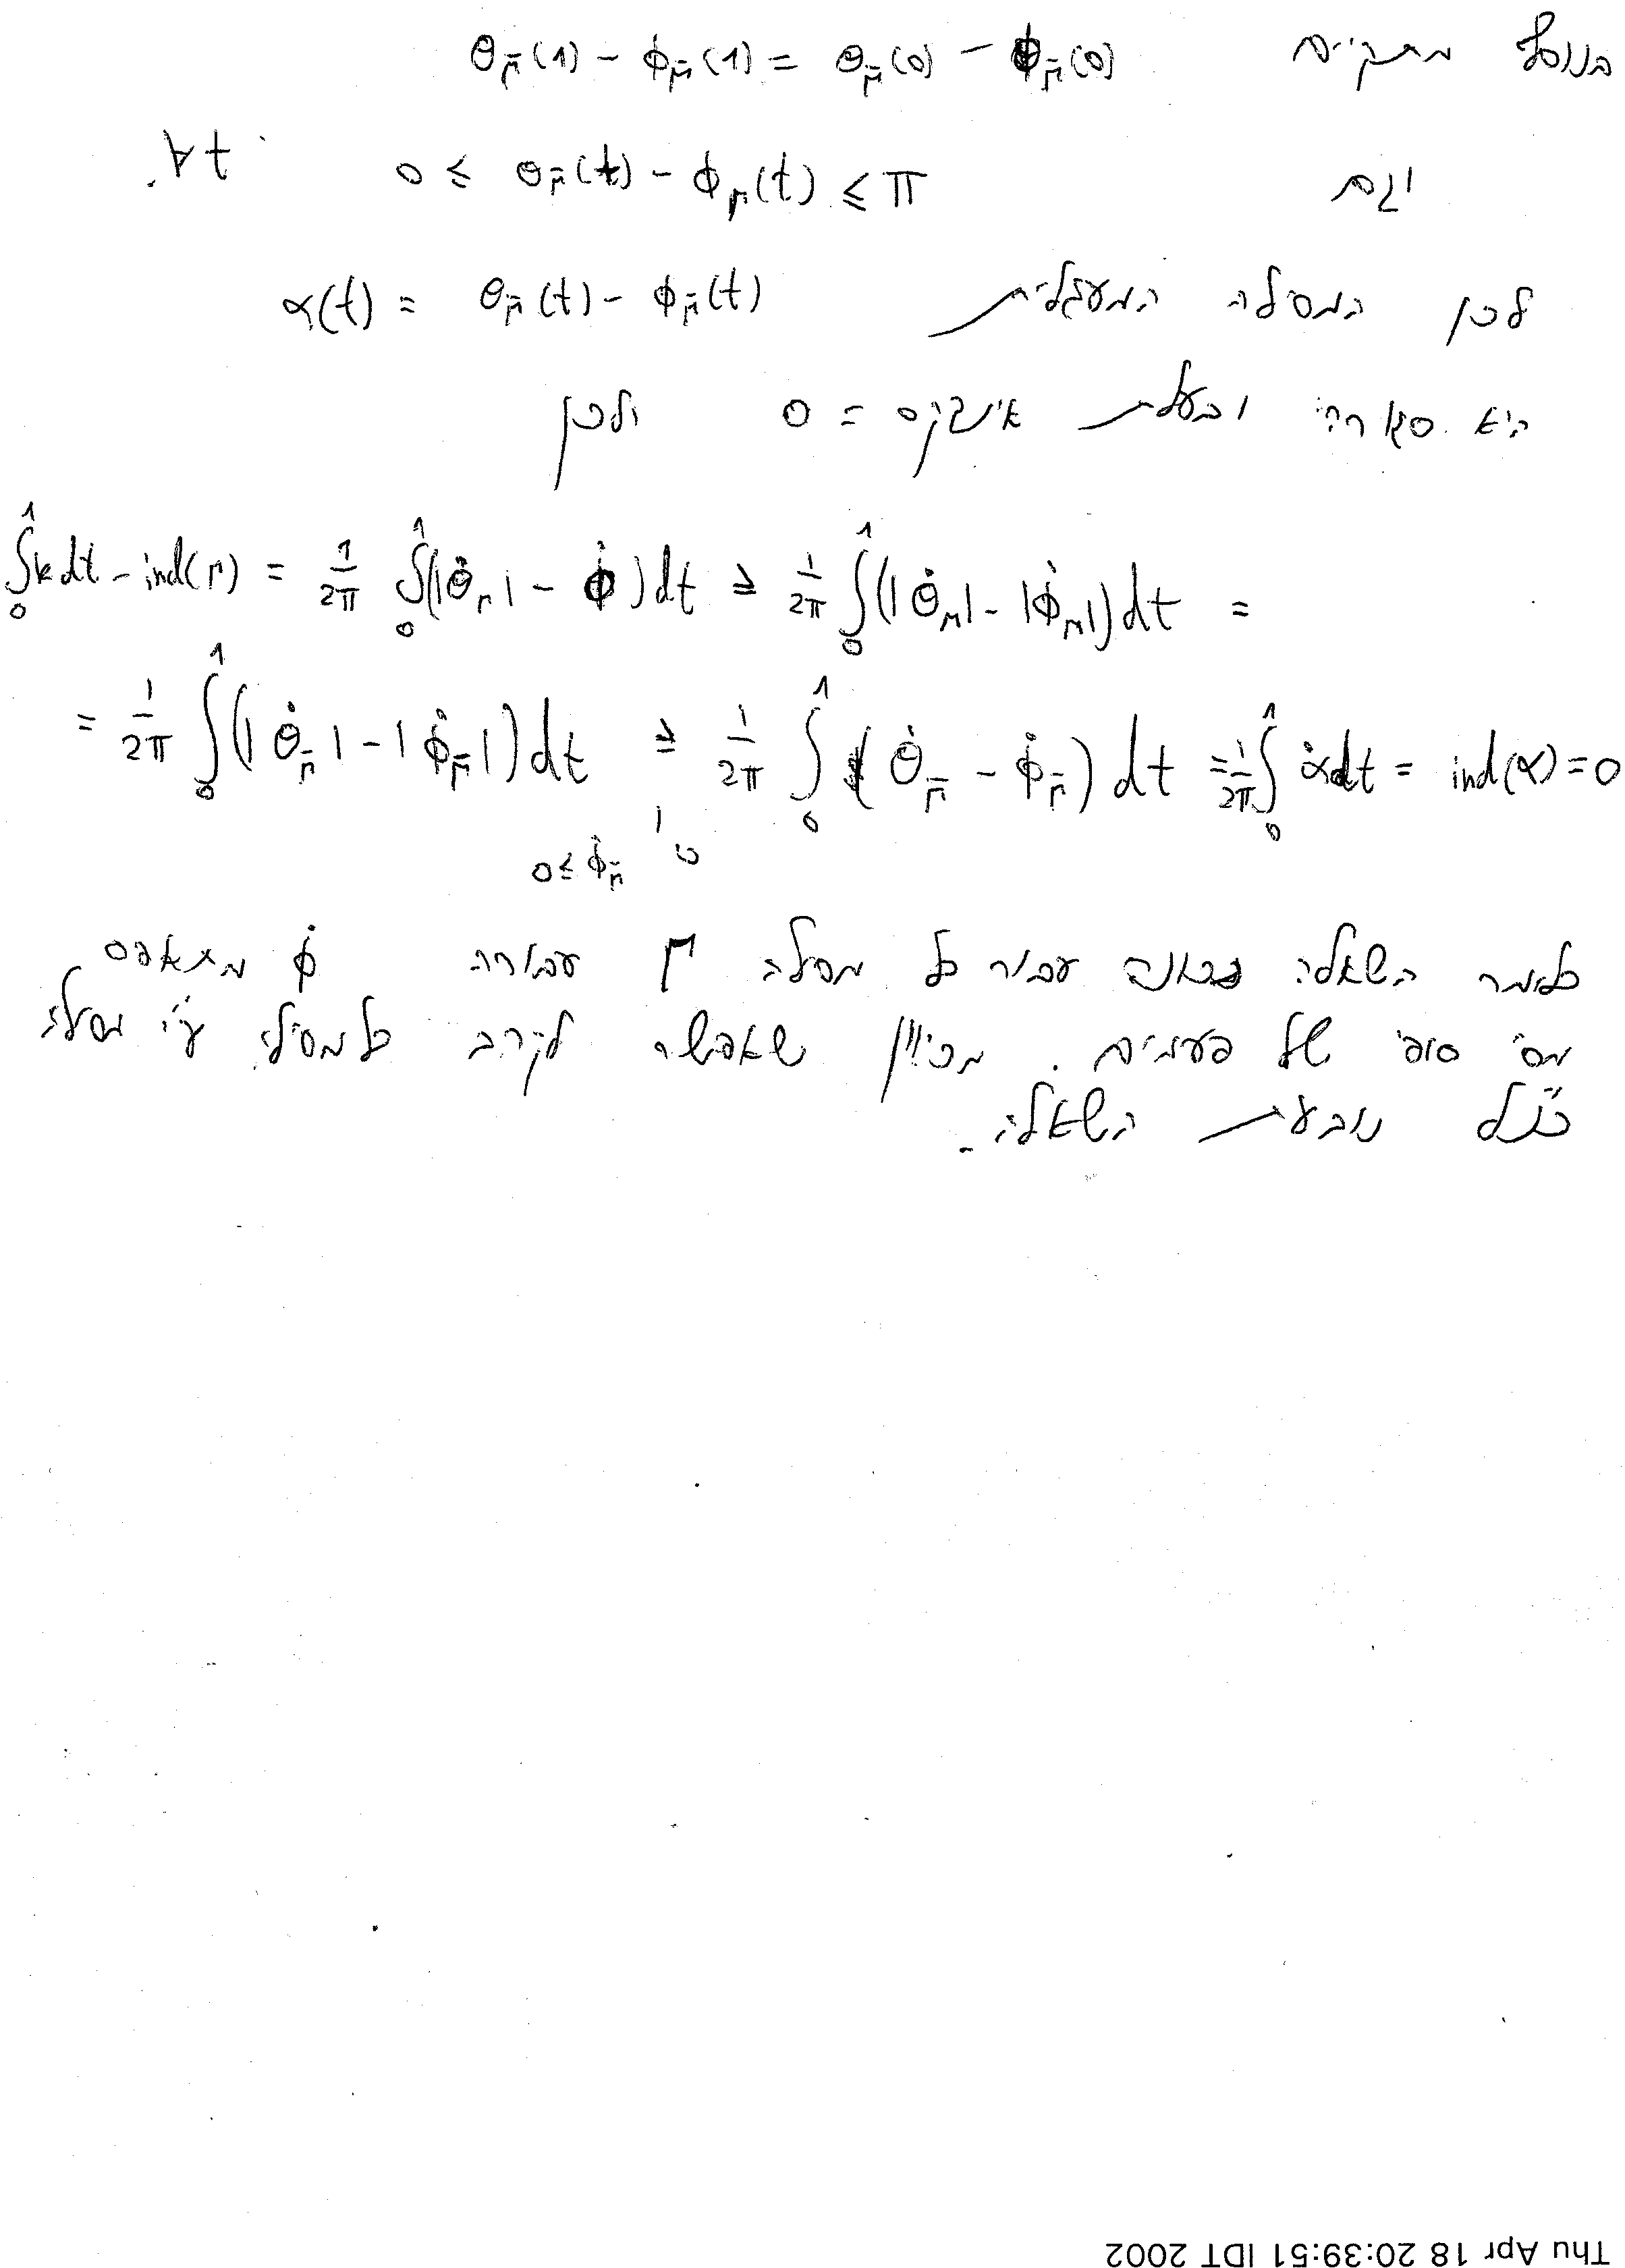 בנוסף מתקיים θ_γ̄(1) - ϕ_γ̄(1) = θ_γ̄(0) - ϕ_γ̄(0)
וגם 0 ≤ θ_γ̄(t) - ϕ_γ(t) ≤ π ∀t.
לכן המסילה המעגלית α(t) = θ_γ̄(t) - ϕ_γ̄(t)
היא סגורה ובעלת אינדקס = 0 ולכן
∫₀¹ k dt - ind(γ) = 1/2π ∫₀¹ (|θ̇_γ| - ϕ̇) dt ≥ 1/2π ∫₀¹ (|θ̇_γ| - |ϕ̇_γ|) dt =
= 1/2π ∫₀¹ (|θ̇_γ̄| - |ϕ̇_γ̄|) dt ≥ 1/2π ∫₀¹ (θ̇_γ̄ - ϕ̇_γ̄) dt = 1/2π ∫₀¹ α̇ dt = ind(α) = 0
כי 0 ≤ ϕ̇_γ̄
כלומר השאלה נכונה עבור כל מסילה γ עבורה ϕ̇ מתאפס
מס' סופי של פעמים. מכיוון שאפשר לקרב כל מסילה ע"י מסילה
כנ"ל נובעת השאלה.
Thu Apr 18 20:39:51 IDT 2002